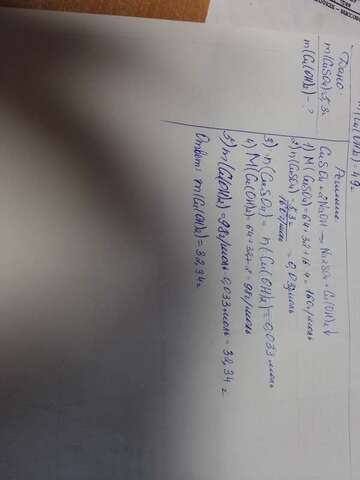 m(Cu(OH)₂) = 49г
Дано:
m(CuSO₄)=5,3г
m(Cu(OH)₂) - ?
Решение
CuSO₄ + 2NaOH → Na₂SO₄ + Cu(OH)₂↓
1) M(CuSO₄) = 64+32+16·4 = 160г/моль
2) n(CuSO₄) = 5,3г / 160г/моль = 0,033моль
3) n(CuSO₄) = n(Cu(OH)₂) = 0,033моль
4) M(Cu(OH)₂) = 64+34·2 = 98г/моль
5) m(Cu(OH)₂) = 98г/моль · 0,033моль = 32,34 г
Ответ: m(Cu(OH)₂) = 32,34г